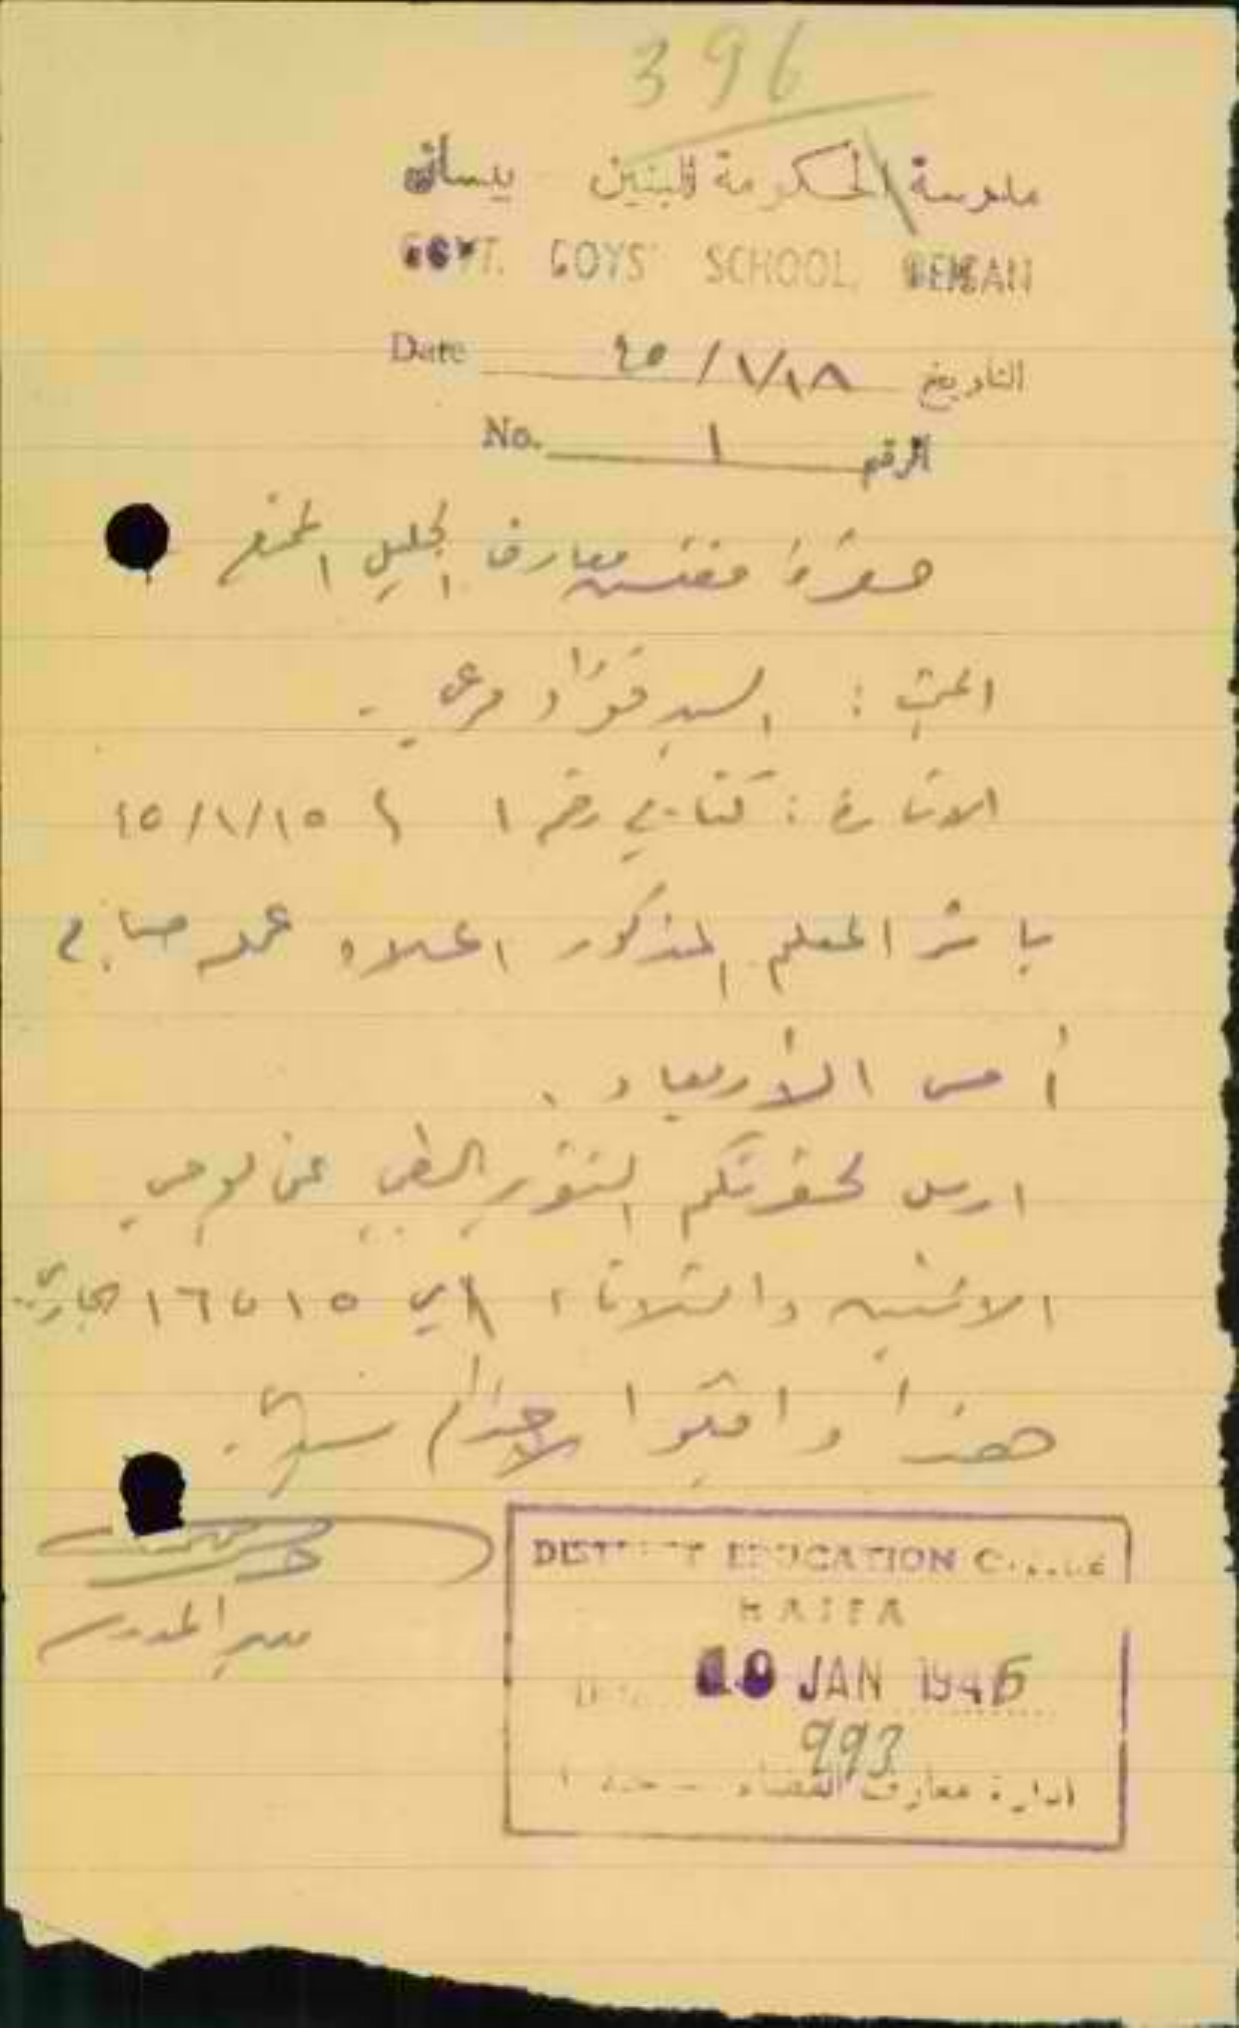 396
مدرسة الحكومة للبنين بيسان
GOVT. BOYS' SCHOOL, BEISAN
Date ٤٥/١/١٨ التاريخ
No. ١ الرقم
حضرة مفتش معارف الجليل المحترم
البحث : السيد فؤاد مرعي .
الاشارة : كتابي رقم ١ ٤٥/١/١٥
باشر المعلم المذكور اعلاه عمله صباح
أمس الأربعاء .
ارسل لحضرتكم التقرير الطبي عن يومي
الاثنين والثلاثاء في ١٥ و ١٦ الجاري .
هذا واقبلوا الاحترام سيدي .
مدير المدرسة
DISTRICT EDUCATION OFFICE
HAIFA
Date 19 JAN 1945
993
ادارة معارف القضاء - حيفا